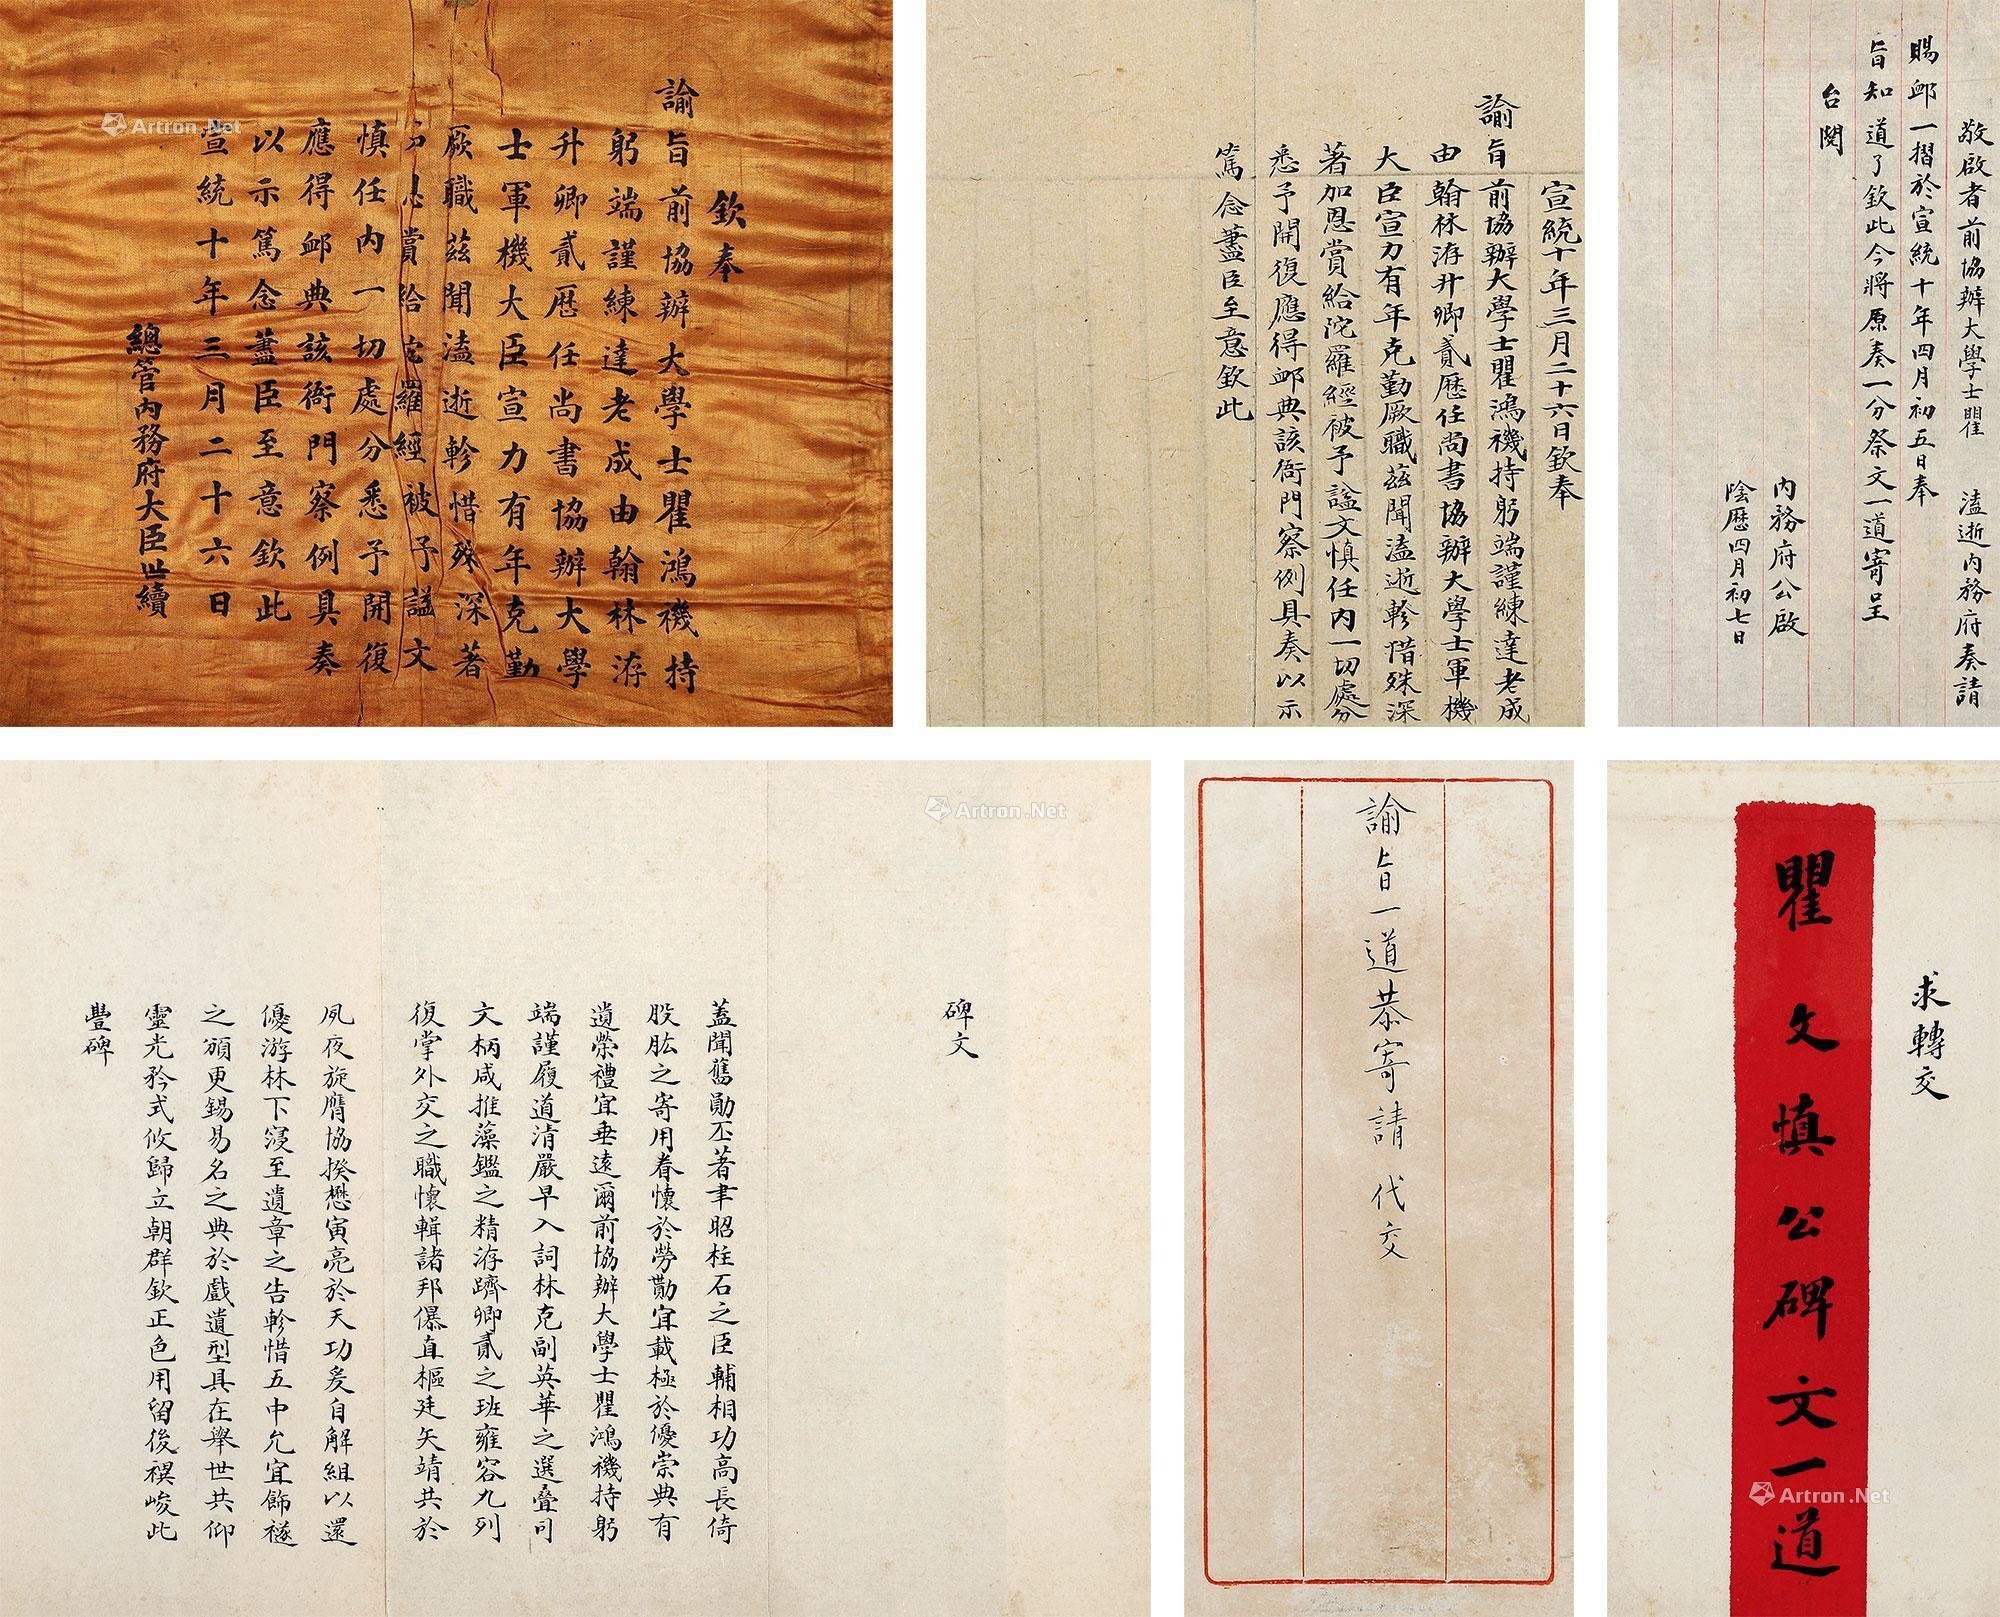 欽奉
諭旨前協辦大學士瞿鴻禨持
躬端謹練達老成由翰林洊
升卿貳歷任尚書協辦大學
士軍機大臣宣力有年克勤
厥職茲聞溘逝軫惜殊深著
賞給陀羅經被予諡文
慎任內一切處分悉予開復
應得卹典該衙門察例具奏
以示篤念藎臣至意欽此
宣統十年三月二十六日
總管內務府大臣世續
宣統十年三月二十六日欽奉
諭旨前協辦大學士瞿鴻禨持躬端謹練達老成
由翰林洊升卿貳歷任尚書協辦大學士軍機
大臣宣力有年克勤厥職茲聞溘逝軫惜殊深
著加恩賞給陀羅經被予諡文慎任內一切處分
悉予開復應得卹典該衙門察例具奏以示
篤念藎臣至意欽此
敬啟者前協辦大學士瞿 溘逝內務府奏請
賜卹一摺於宣統十年四月初五日奉
旨知道了欽此今將原奏一分祭文一道寄呈
台閱
內務府公啟
陰歷四月初七日
碑文
蓋聞舊勛丕著聿昭柱石之臣輔相功高長倚
股肱之寄用眷懷於勞勩宜載極於優崇典有
遺榮禮宜垂遠爾前協辦大學士瞿鴻禨持躬
端謹履道清嚴早入詞林克副英華之選疊司
文柄咸推藻鑑之精洊躋卿貳之班雍容九列
復掌外交之職懷輯諸邦儤直樞廷矢靖共於
夙夜旋膺協揆懋寅亮於天功爰自解組以還
優游林下寖至遺章之告軫惜五中允宜飾襚
之頒更錫易名之典於戲遺型具在舉世共仰
靈光矜式攸歸立朝群欽正色用留後禩峻此
豐碑
諭旨一道恭寄請代交
求轉交
瞿文慎公碑文一道
Artron.Net
Artron.Net
Artron.Net